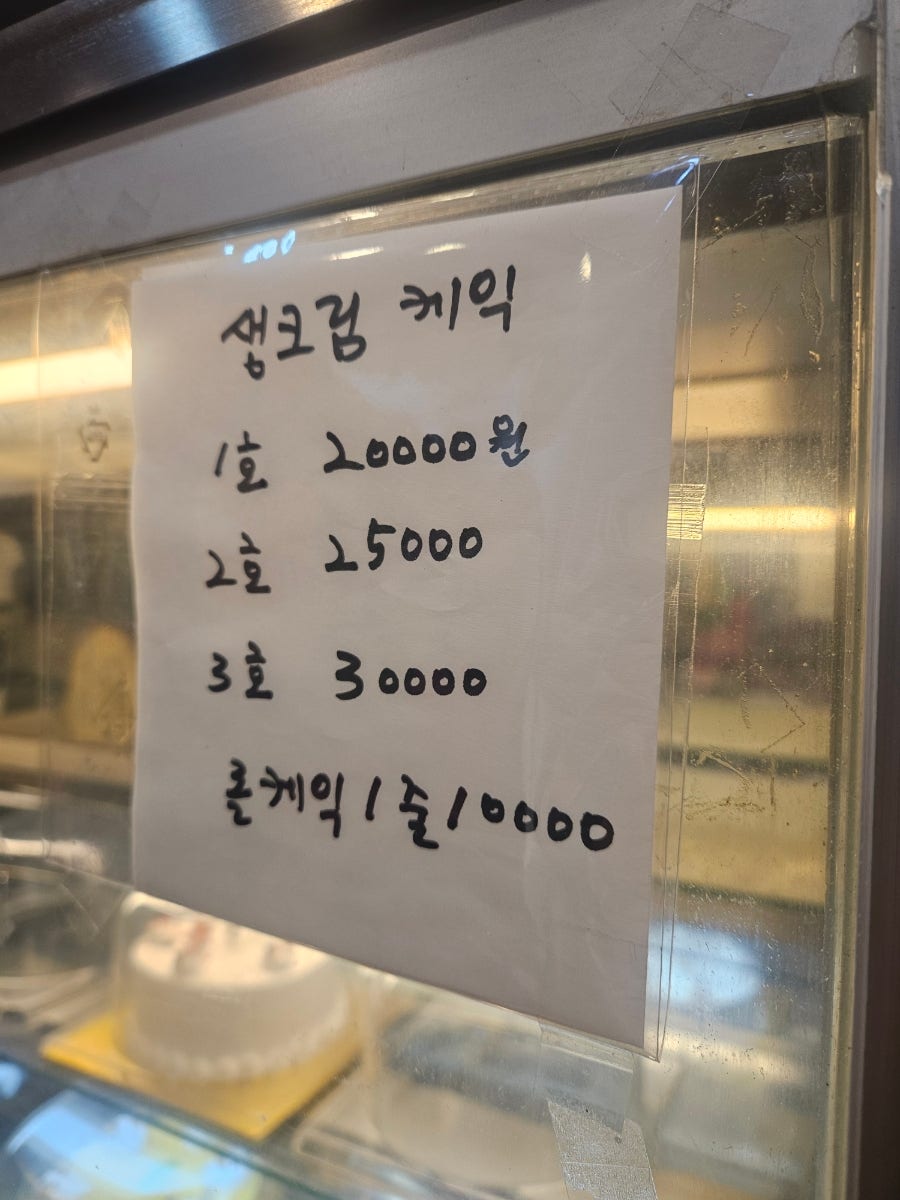 생크림 케익
1호 20000원
2호 25000
3호 30000
롤케익 1줄 10000